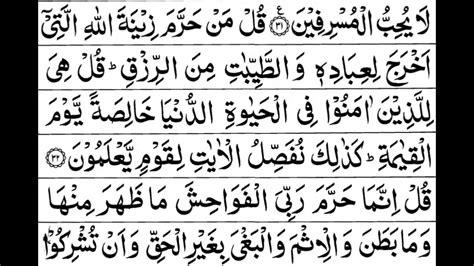 لَا يُحِبُّ الْمُسْرِفِيْنَ ﴿۳۱﴾ ع قُلْ مَنْ حَرَّمَ زِيْنَةَ اللّٰهِ الَّتِيْٓ
اَخْرَجَ لِعِبَادِهٖ وَ الطَّيِّبٰتِ مِنَ الرِّزْقِ ؕ قُلْ هِيَ
لِلَّذِيْنَ اٰمَنُوْا فِي الْحَيٰوةِ الدُّنْيَا خَالِصَةً يَّوْمَ
الْقِيٰمَةِ ؕ كَذٰلِكَ نُفَصِّلُ الْاٰيٰتِ لِقَوْمٍ يَّعْلَمُوْنَ ﴿۳۲﴾
قُلْ اِنَّمَا حَرَّمَ رَبِّيَ الْفَوَاحِشَ مَا ظَهَرَ مِنْهَا
وَ مَا بَطَنَ وَ الْاِثْمَ وَ الْبَغْيَ بِغَيْرِ الْحَقِّ وَ اَنْ تُشْرِكُوْا